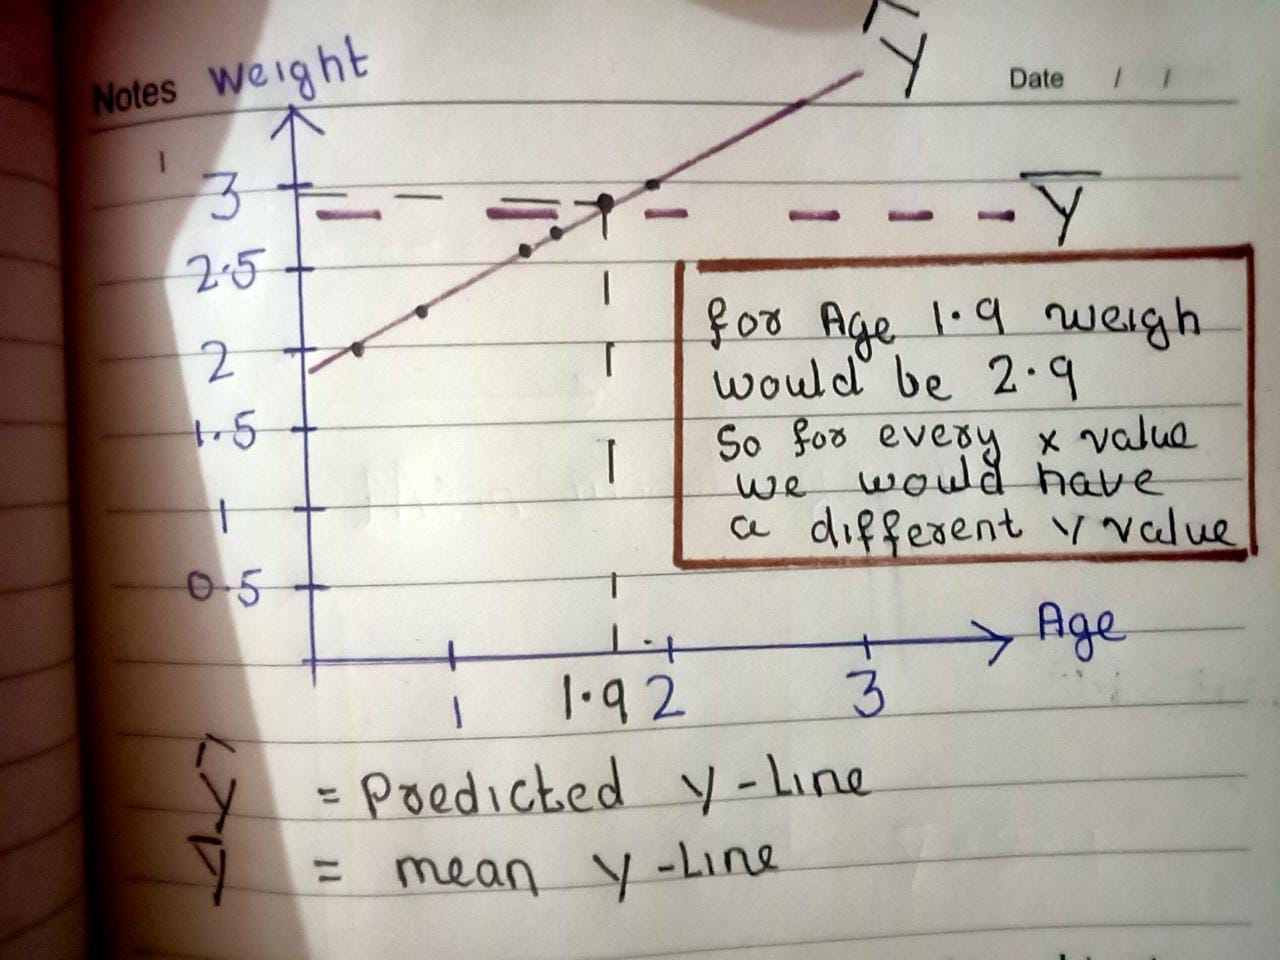 Notes Weight
Date / /
Ŷ
3
Ȳ
2.5
2
1.5
1
0.5
for Age 1.9 weigh
would be 2.9
So for every x value
we would have
a different y value
Age
1 1.9 2 3
Ŷ = Predicted y-Line
Ȳ = mean y-Line